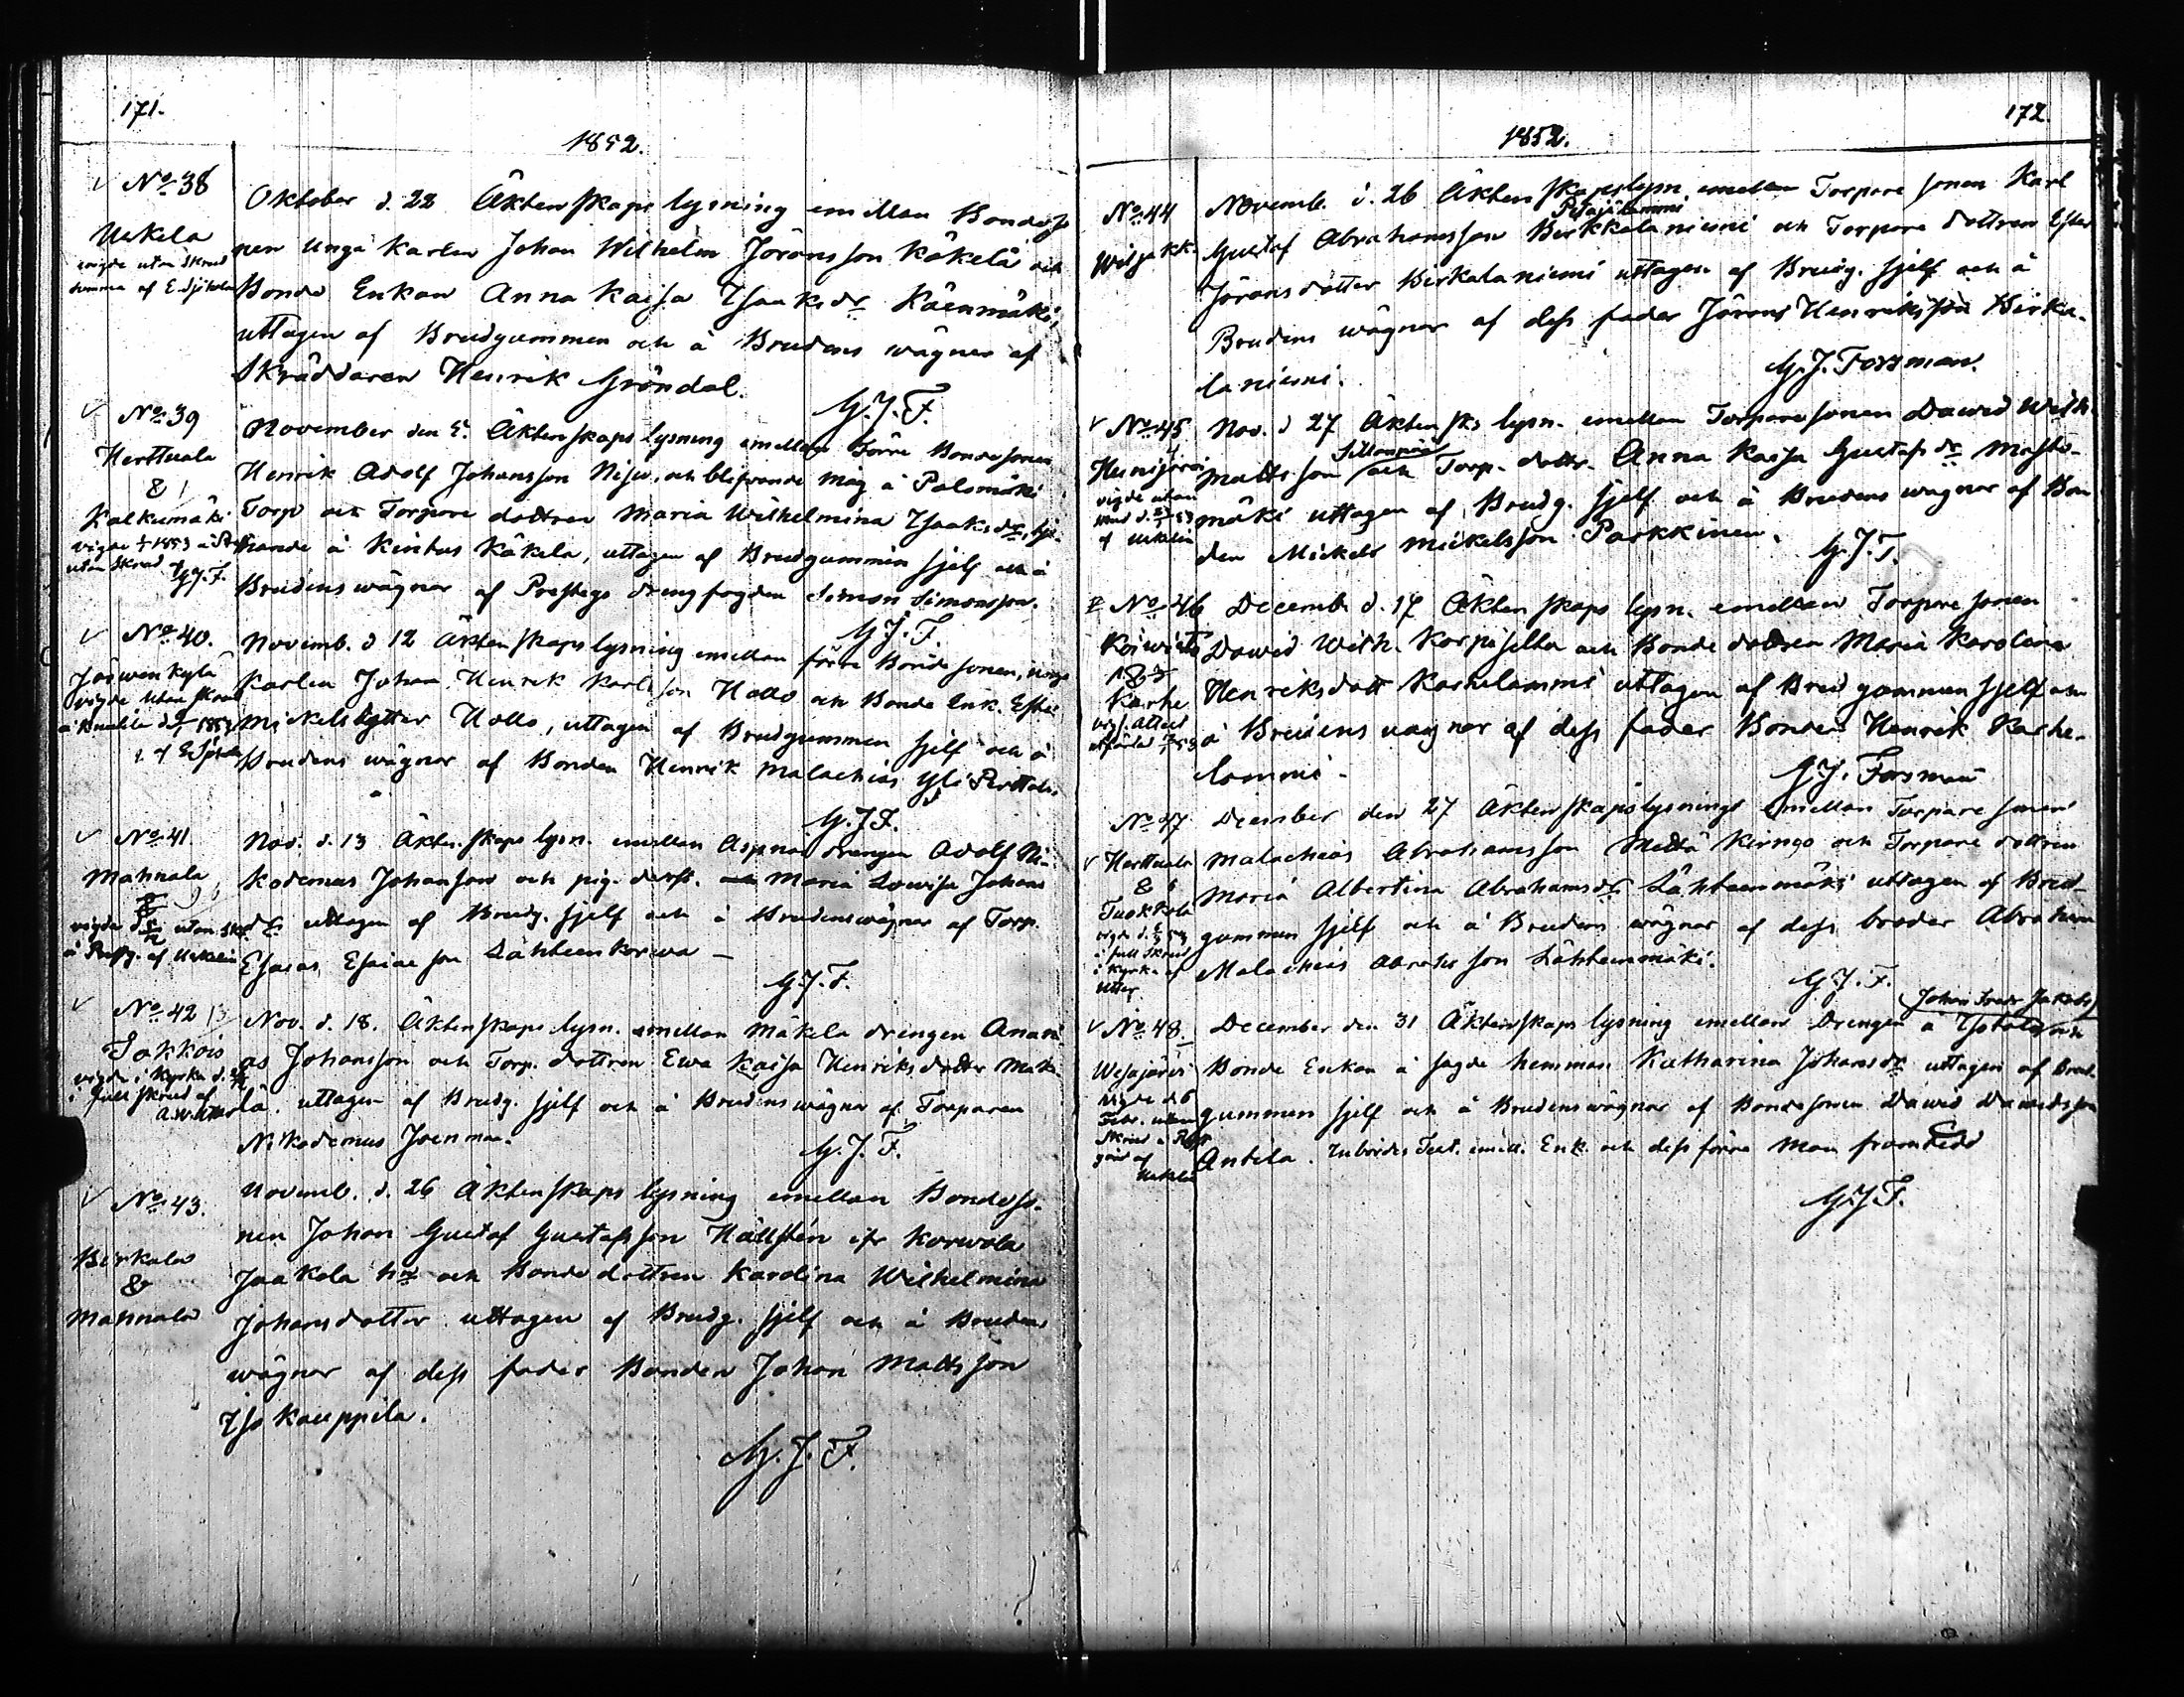 171.
1852.
No 38
Uskela
vigde utan Skrud
Oktober d. 22 Äktenskaps lysning emellan Bondeso
nen unga Karlen Johan Wilhelm Jöransson Käkelä och
Bonde Enkan Anna Kaisa Isaksdr Käenmäki,
uttagen af Brudgummen och å Brudens wägnar af
Skräddaren Henrik Gröndal.
G. J. F.
No 39
Herttuala
&
Kalkunmäki
vigde 1853
utan Skrud af
G. J. F.
November den 5. Äktenskaps lysning emellan förre Bondesonen
Henrik Adolf Johansson Nisu, och blifvande måg å Palomäki
Torp och Torpare dottren Maria Wilhelmina Isaksdr,
å Kintus Käkelä, uttagen af Brudgummen sjelf och å
Brudens wägnar af Prestegs drengfogden Simon Simonsson.
G. J. F.
No 40.
Jäwenkylä
vigde utan skrud
Novemb. d 12 Äktenskaps lysning emellan förre Bondesonen, unga
Karlen Johan Henrik Karlsson Hallo och Bonde Enk. Ester
Mickelsdotter Hallo, uttagen af Brudgummen sjelf och å
Brudens wägnar af Bonden Henrik Malachias Yli Perttula.
G. J. F.
No 41
Mahnala
vigde utan skr.
Nov. d. 13 Äktenskaps lysn. emellan Aspnäs drengen Adolf Ni-
kodemus Johansson och pig. derst. Maria Lowisa Johans
dr uttagen af Brudg. sjelf och å Brudens wägnar af Torp.
Esaias Esaiae son Lähteenkorwa –
G. J. F.
No 42
Sakkois
vigde i Kyrka d.
i full skrud af
Nov. d. 18. Äktenskaps lysn. emellan Mäkelä drengen Anani
as Johansson och Torp. dottren Ewa Kaisa Henriksdotter Mäke
lä. uttagen af Brudg. sjelf och å Brudens wägnar af Torparen
Nikodemus Joenmaa.
G. J. F.
No 43.
Birkala
&
Mahnala
Novemb. d. 26 Äktenskaps lysning emellan Bondeso-
nen Johan Gustaf Gustafsson Hällstén ifr Korwola
Jaakola hn och Bonde dottren Karolina Wilhelmina
Johansdotter uttagen af Brudg. sjelf och å Brudens
wägnar af dess fader Bonden Johan Mattsson
Iso Kauppila.
G. J. F.
172.
1852.
No 44
Wiljakk.
Novemb. d. 26 Äktenskapslysn. emellan Torpare sonen Karl
Petäjälammi
Gustaf Abrahamsson Birkkalaniemi och Torpare dottren Ester
Jöransdotter Birkalaniemi uttagen af Brudg. sjelf och å
Brudens wägnar af dess fader Jöran Henriksson Birka-
laniemi.
G. J. Forsman.
No 45
vigde utan
af Uskelin
Nov. d 27 Äktensks lysn. emellan Torparesonen Dawid Wilh.
Mattsson och Torp. dottr. Anna Kaisa Gustafsdr Masto-
mäki uttagen af Brudg. sjelf och å Brudens wägnar af Bon
den Mickel Mickelsson Parkkinen.
G. J. F.
No 46
Koiwisto
&
Karhe
Decemb. d. 17 Äktenskaps lysn. emellan Torpare sonen
Dawid Wilh. Korpiselkä och Bonde dottren Maria Karolina
Henriksdott Karhelammi uttagen af Brudgummen sjelf och
å Brudens wägnar af dess fader Bonden Henrik Karhe-
lammi.
G. J. Forsman
No 47
Herttuala
&
Tuokkola
i full Skrud
i Kyrka af
Utter
December den 27 Äktenskapslysning emellan Torpare sonen
Malachias Abrahamsson Mettä Kirngo och Torpare dottren
Maria Albertina Abrahamsdr Lähteenmäki uttagen af Brud-
gummen sjelf och å Brudens wägnar af dess broder Abraham
Malachias Abrahsson Lähteenmäki.
G. J. F.
No 48
Wesajärvi
vigde d 6
Febr. utan
Skrud å Prest
gård af
Uskelin
Johan Jakobs
December den 31 Äktenskaps lysning emellan Drengen å och
Bonde Enkan å sagde hemman Katharina Johansdr uttagen af Brud-
gummen sjelf och å Brudens wägnar af Bondesonen Dawid Dawidsson
Antila. Inbördes Test. emell. Enk. och dess förre Man framtedd
G. J. F.